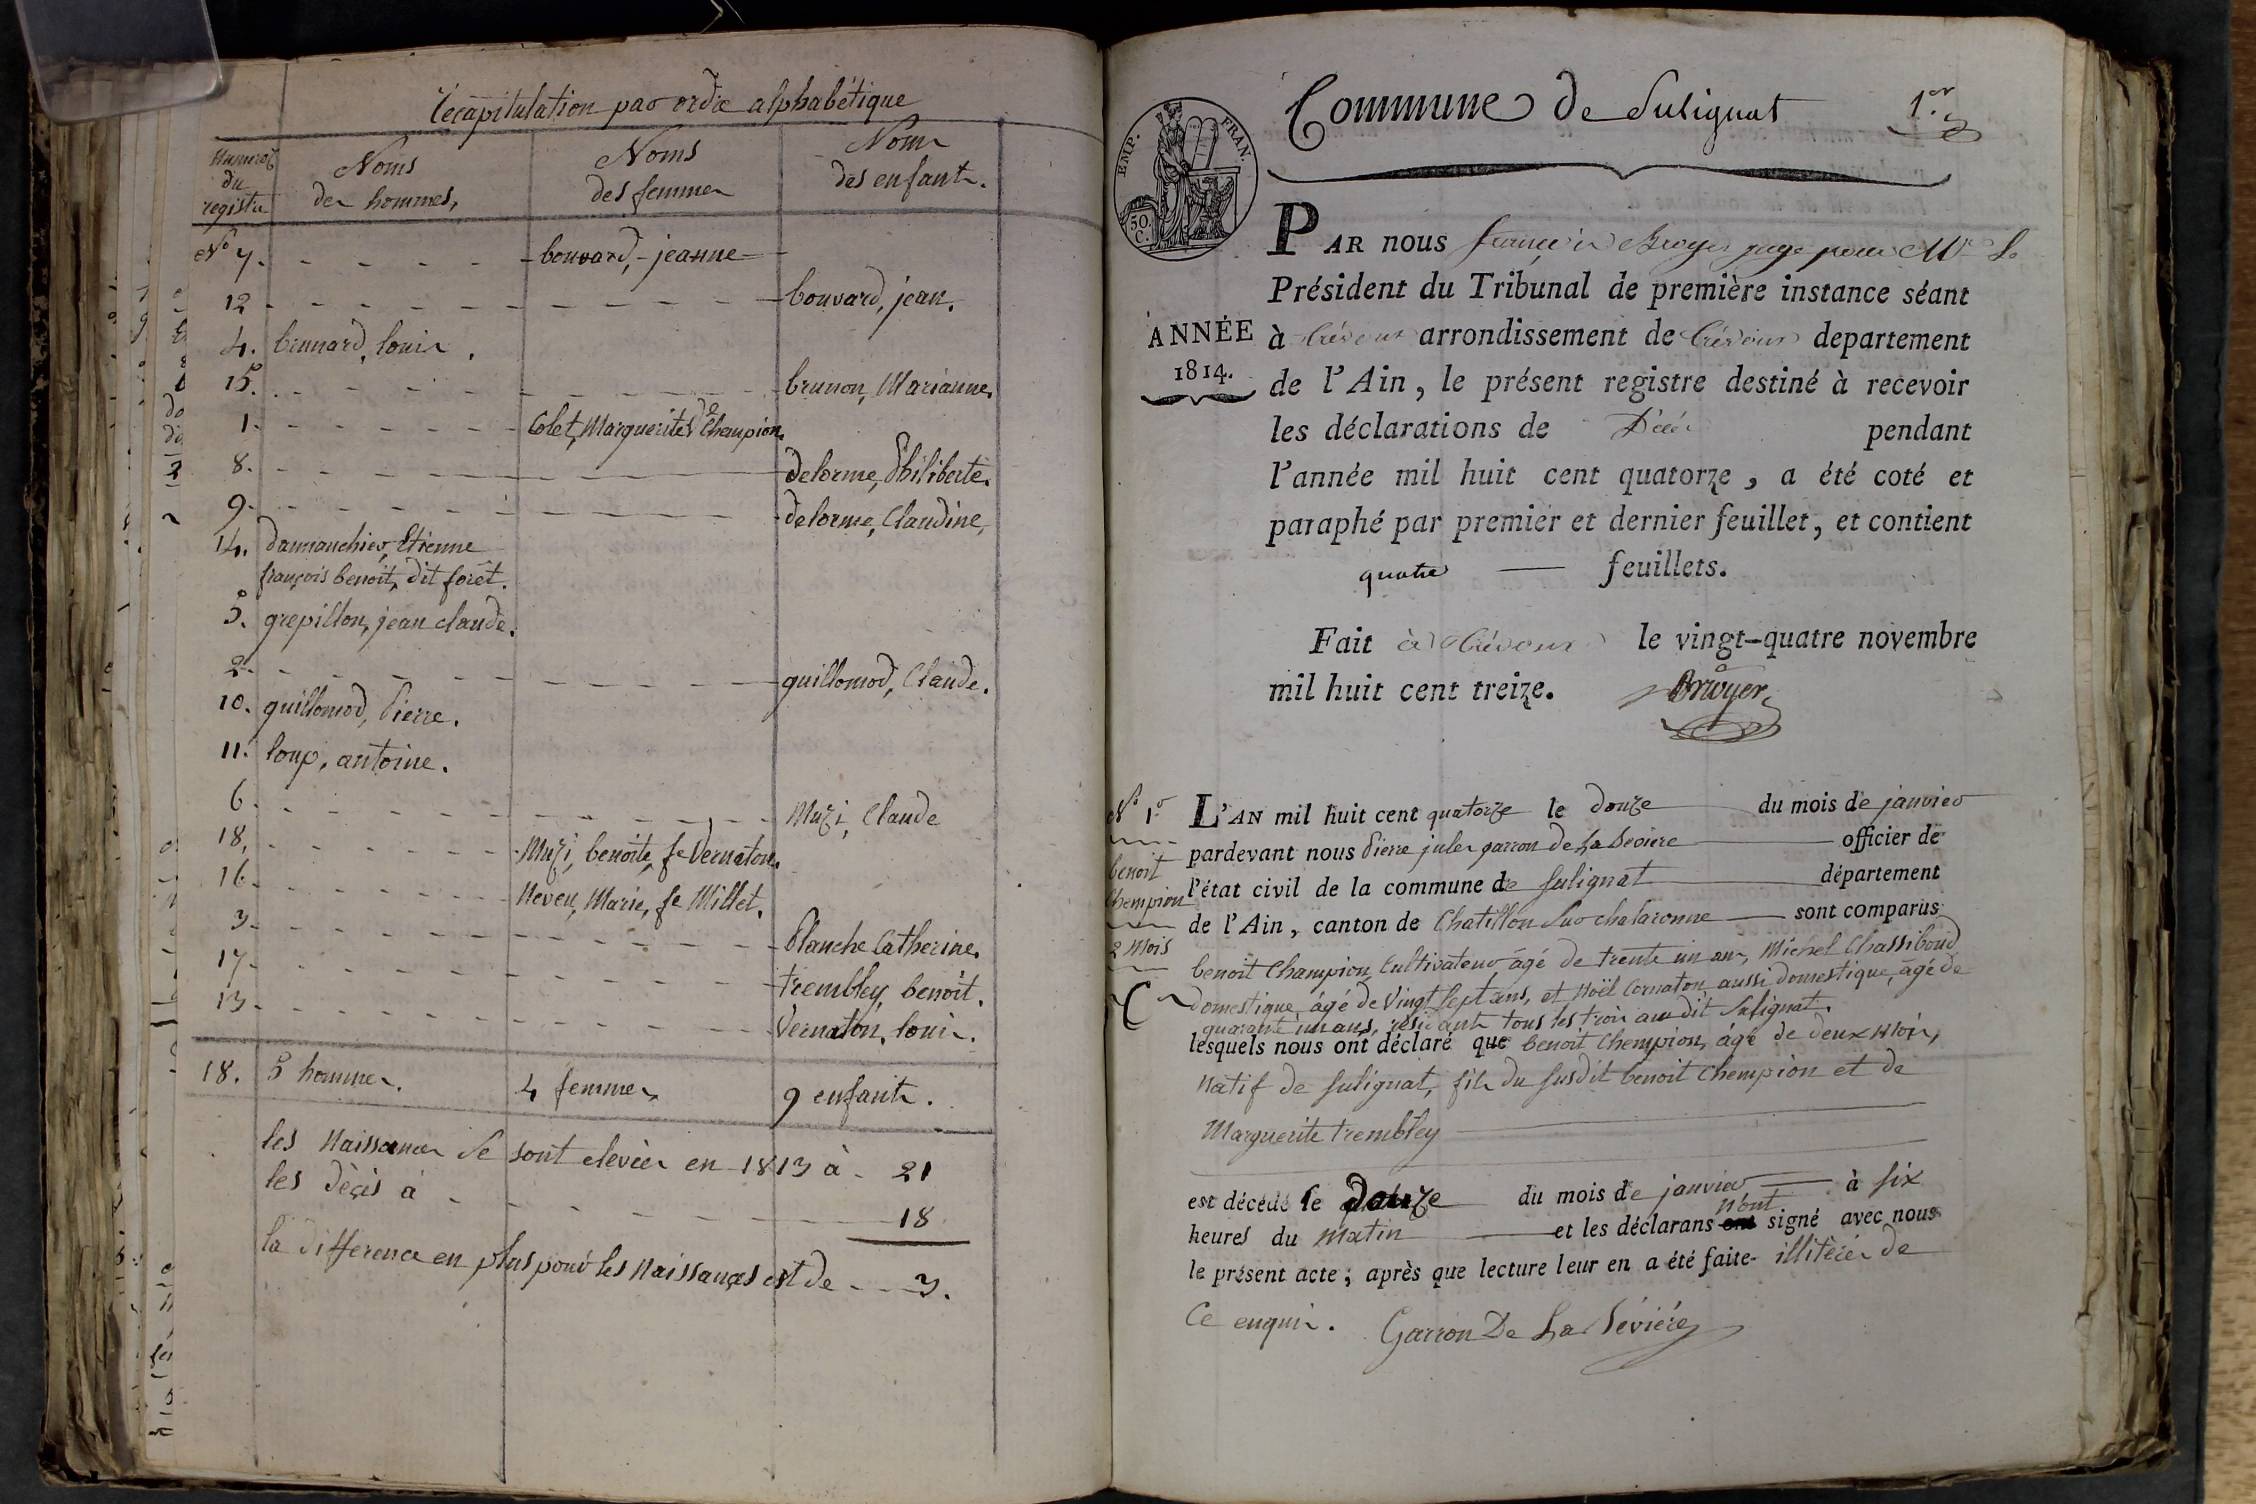 Récapitulation par ordre alphabétique
Numeros du registre
Noms des hommes,
Noms des femmes
Noms des enfants.
N° 7. - - - - - bouvard, jeanne
12 - - - - - bouvard, jean.
4. bernard, louis.
15. - - - - - brunon, Marianne.
1. - - - - - Colet, Marguerite, Ve Champion.
8. - - - - - delorme, Philiberte.
9. - - - - - delorme, Claudine,
14. damanchier, Etienne
françois benoit, dit forêt.
5. grepillon, jean claude.
2. - - - - - guillomod, Claude.
10. guillomod, Pierre.
11. loup, antoine.
6. - - - - - Muzi, Claude
18. - - - - - Muzi, benoite, fe Vernaton.
16. - - - - - Neveu, Marie, fe Millet.
3. - - - - - Planche Catherine.
17. - - - - - trembley, benoit.
13. - - - - - Vernaton, louis.
18. 5 hommes. 4 femmes 9 enfants.
les Naissances se sont elevées en 1813 à - 21
les décès à - - - - - 18
la difference en plus pour les Naissances est de - - - 3.
Commune de Sulignat 1.er
EMP. FRAN.
50. C.
PAR nous françois Broyer juge pour Mr Le
Président du Tribunal de première instance séant
ANNÉE
1814.
à Trévoux arrondissement de Trévoux departement
de l'Ain, le présent registre destiné à recevoir
les déclarations de Décès pendant
l'année mil huit cent quatorze, a été coté et
paraphé par premier et dernier feuillet, et contient
quatre — feuillets.
Fait à Trévoux le vingt-quatre novembre
mil huit cent treize. Brwyer
N° 1.er
benoit
Chempion
2 Mois
L'AN mil huit cent quatorze le douze du mois de janvier
pardevant nous Pierre jules garron de La Seviere officier de
l'état civil de la commune de Sulignat département
de l'Ain, canton de Chatillon sur chalaronne sont comparus
benoît Champion, Cultivateur âgé de trente un an, Michel Chassiboud
domestique, âgé de Vingt Sept ans, et Noël Cornaton aussi domestique, âgé de
quarante un ans, résidants tous les trois au dit Sulignat.
lesquels nous ont déclaré que benoit Chempion, âgé de deux Mois,
Natif de Sulignat, fils du susdit benoit Chempion et de
Marguerite trembley
est décédé le douze du mois de janvier à six
heures du Matin et les déclarans n'ont signé avec nous
le présent acte; après que lecture leur en a été faite- illitérés de
Ce enquis. Garron De La Sévière